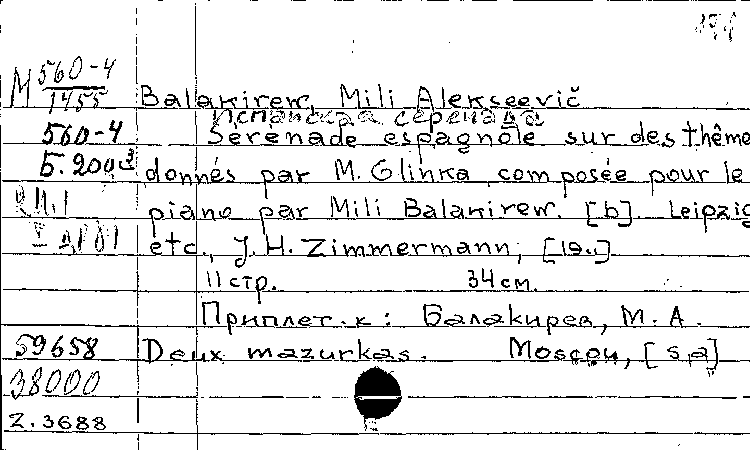 М 560-4
1455
Balakirew, Mili Alekseevič
Испанская серенада
560-4 Serenade espagnole sur des thême
Б. 200 donnés par M. Glinka composée pour le
piano par Mili Balakirew. [b] Leipzig
etc., J. H. Zimmermann, [19..]
11 стр. 34 см.
Приплет. к: Балакирев, М. А.
59658 Deux mazurkas. Moscou, [s,a]
38000
Z. 3688